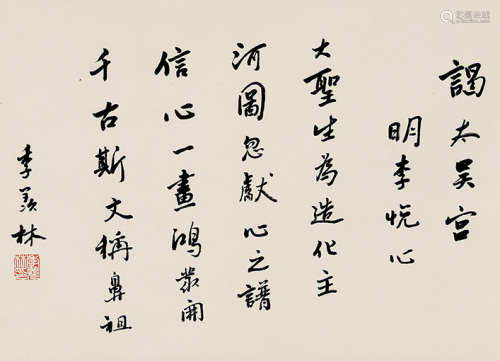 謁太昊宫
明李悦心
大聖生為造化主
河圖忽獻心之譜
信心一畫鴻濛開
千古斯文稱鼻祖
季羡林